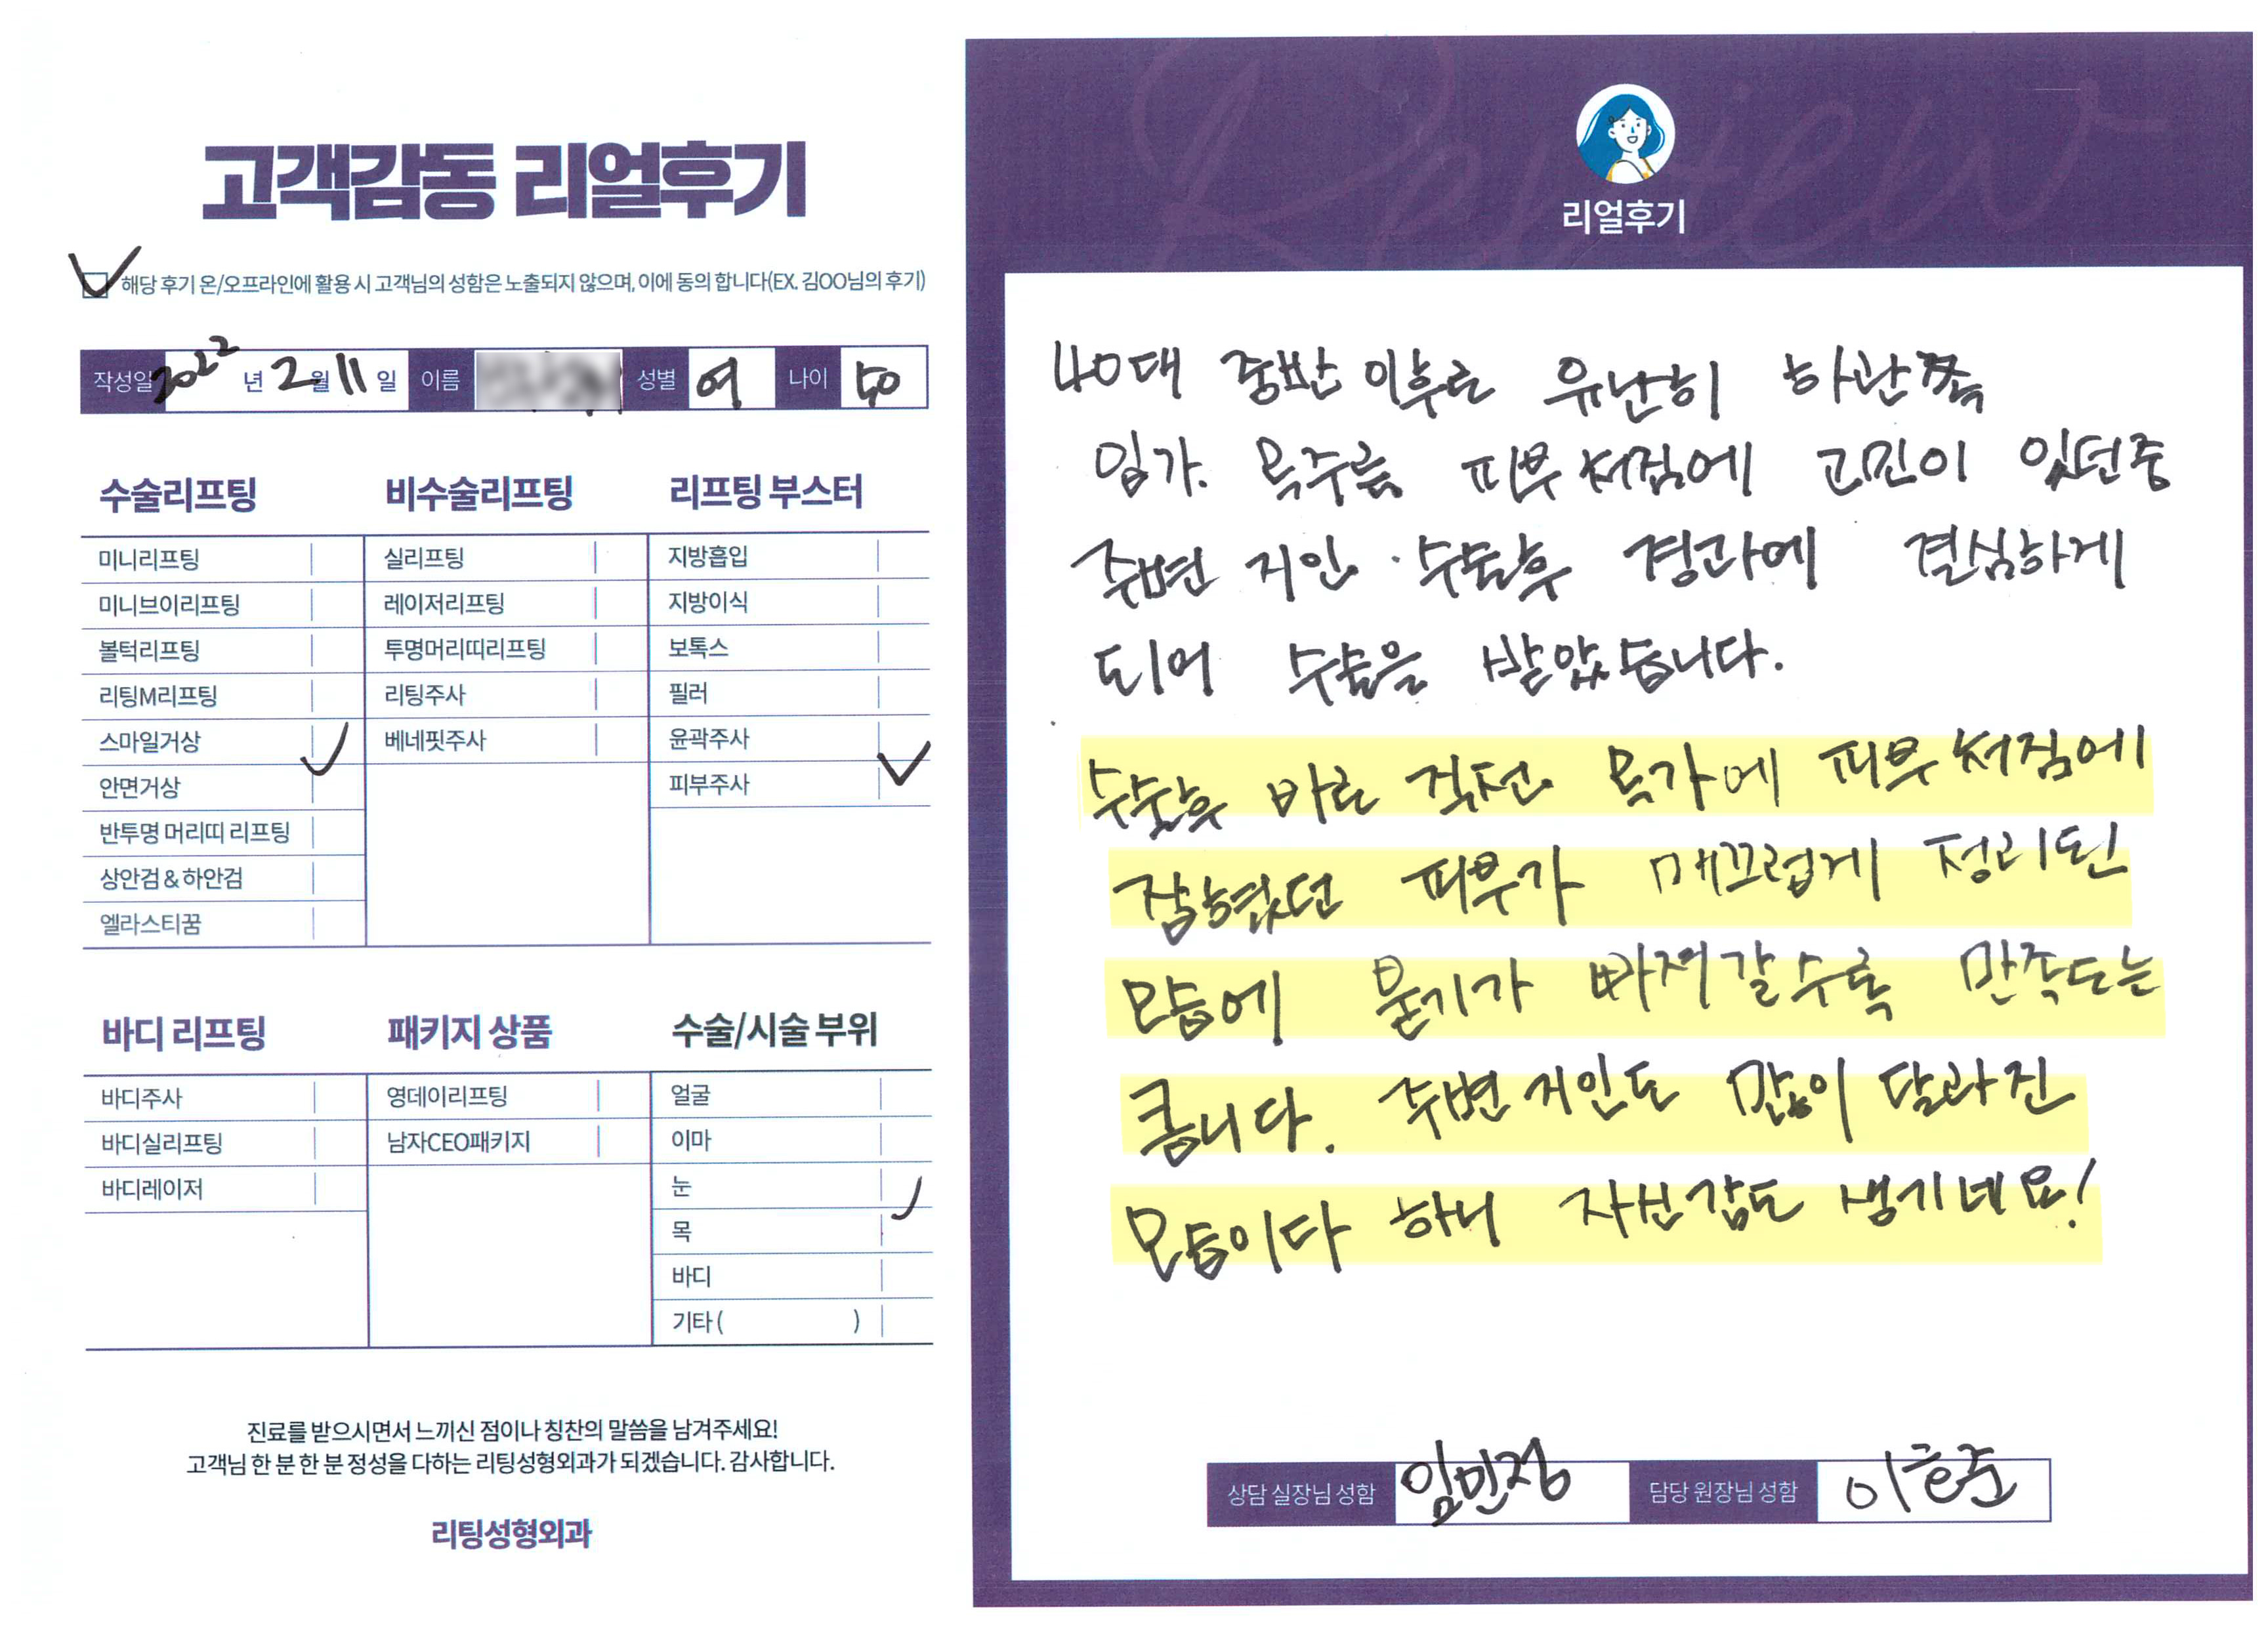 고객감동 리얼후기
해당 후기 온/오프라인에 활용 시 고객님의 성함은 노출되지 않으며, 이에 동의 합니다(EX. 김OO님의 후기)
작성일 2022 년 2 월 11 일 이름 성별 여 나이 50
수술리프팅
미니리프팅
미니브이리프팅
볼턱리프팅
리팅M리프팅
스마일거상
안면거상
반투명 머리띠 리프팅
상안검 & 하안검
엘라스티꿈
비수술리프팅
실리프팅
레이저리프팅
투명머리띠리프팅
리팅주사
베네핏주사
리프팅 부스터
지방흡입
지방이식
보톡스
필러
윤곽주사
피부주사
바디 리프팅
바디주사
바디실리프팅
바디레이저
패키지 상품
영데이리프팅
남자CEO패키지
수술/시술 부위
얼굴
이마
눈
목
바디
기타 ( )
진료를 받으시면서 느끼신 점이나 칭찬의 말씀을 남겨주세요!
고객님 한 분 한 분 정성을 다하는 리팅성형외과가 되겠습니다. 감사합니다.
리팅성형외과
Review
리얼후기
40대 중반 이후로 유난히 하관쪽
입가. 목주름 피부 쳐짐에 고민이 있던중
주변 지인 수술후 경과에 결심하게
되어 수술을 받았습니다.
수술후 바로 직전 목가에 피부 쳐짐에
잡혔던 피부가 매끄럽게 정리된
모습에 붇기가 빠져갈수록 만족도는
큽니다. 주변 지인도 많이 달라진
모습이다 하니 자신감도 생기네요!
상담 실장님 성함 임민정 담당 원장님 성함